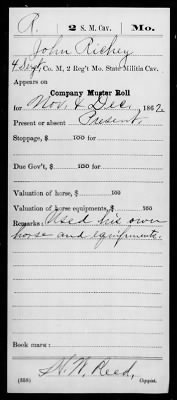 R. 2 S. M. Cav. Mo.
John Richey
4 Sergt, Co. M, 2 Reg't Mo. State Militia Cav.
Appears on
Company Muster Roll
for Nov. & Dec., 1862
Present or absent Present.
Stoppage, $ 100 for
Due Gov't, $ 100 for
Valuation of horse, $ 100
Valuation of horse equipments, $ 100
Remarks: Used his own
horse and equipments.
Book mark:
H. W. Reed,
(358) Copyist.